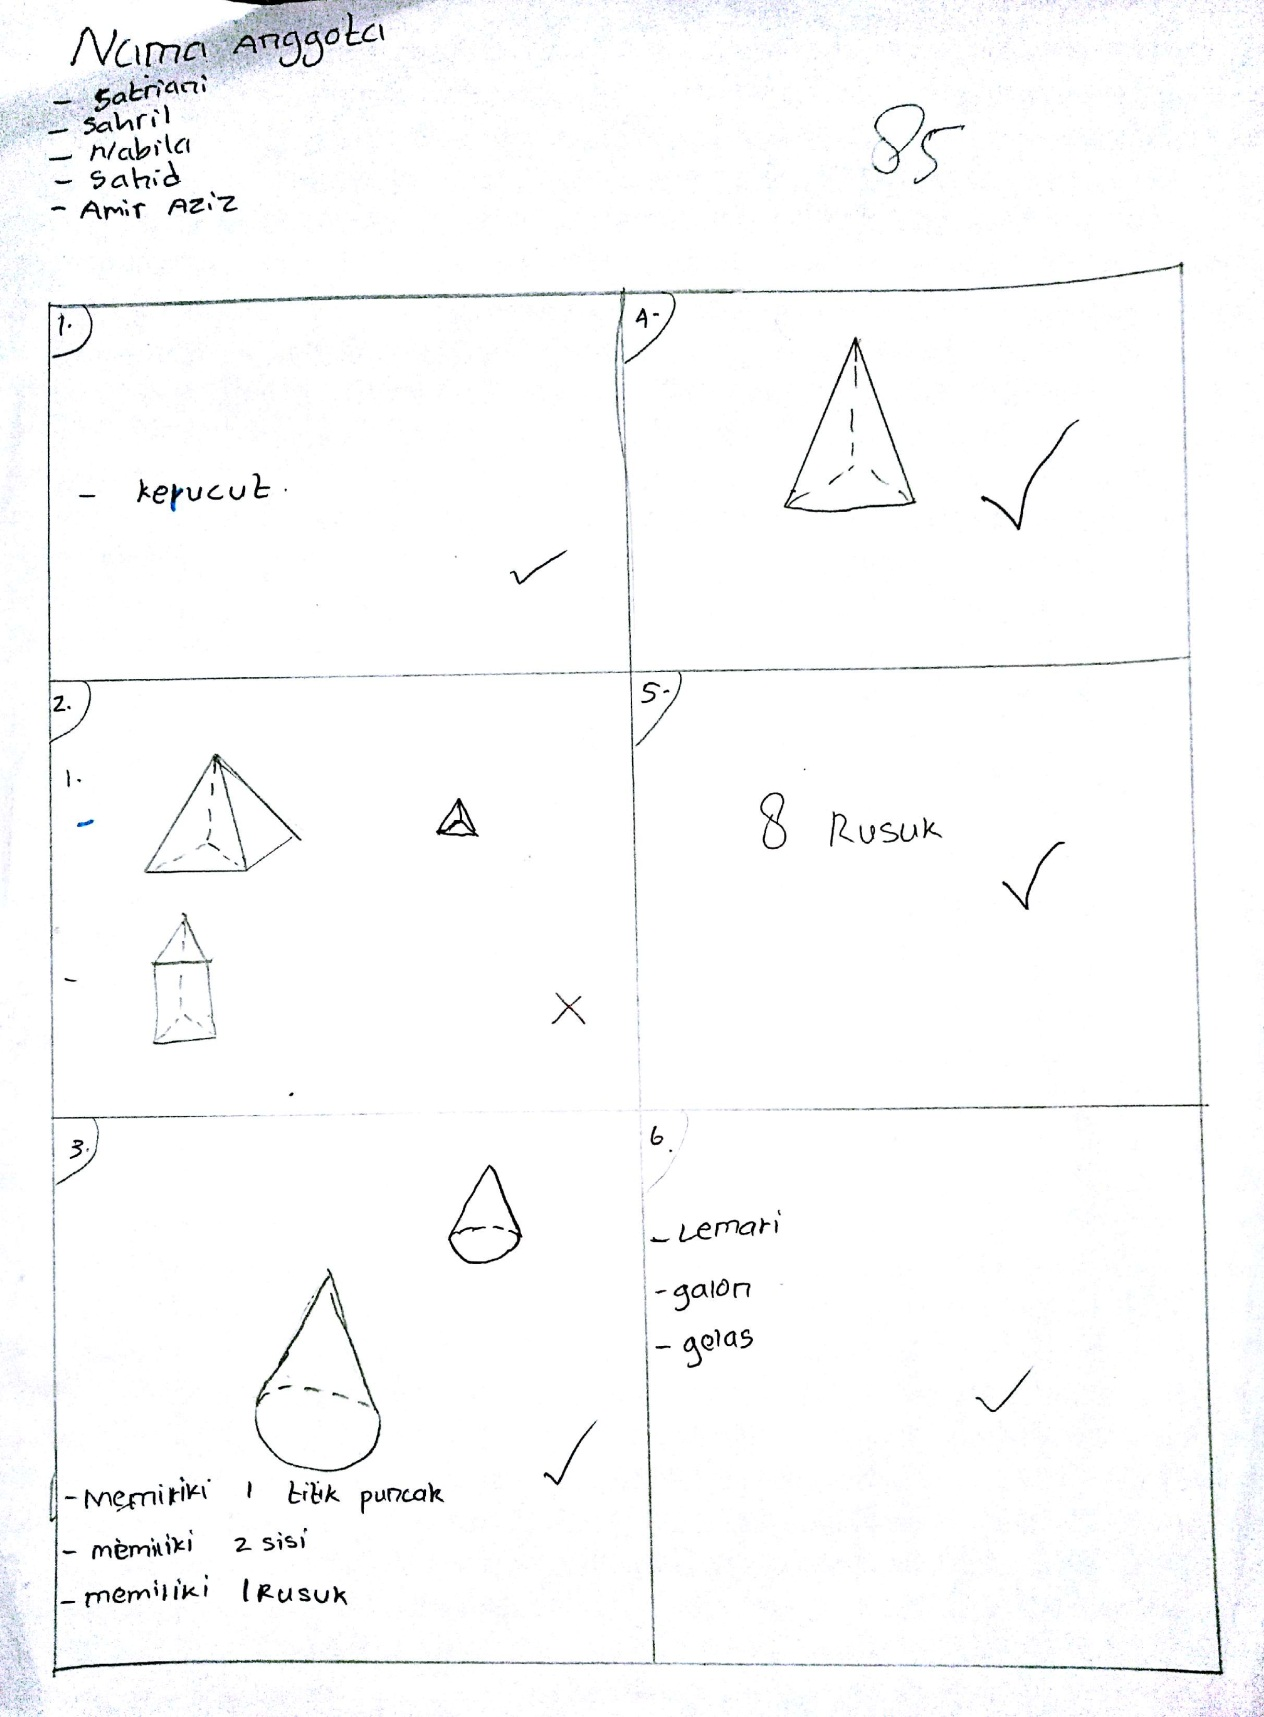 Nama Anggota
- Satriani
- Sahril
- Nabila
- Sahid
- Amir Aziz
85
1.
- kerucut.
2.
1.
-
-
3.
- Memiriki 1 titik puncak
- memiliki 2 sisi
- memiliki 1 Rusuk
4.
5.
8 Rusuk
6.
- Lemari
- galon
- gelas